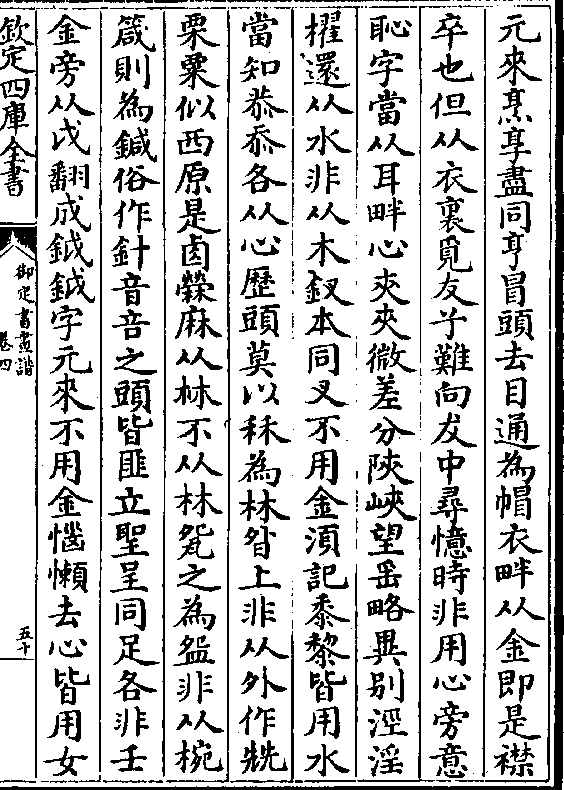 元來烹享盡同亨冒頭去目通為帽衣畔从金即是襟
卒也但从衣裏覓友兮難向犮中尋憶時非用心旁意
恥字當从耳畔心夾夾微差分陜峽望䍃略異别淫滛
櫂還从水非从木釵本同叉不用金湏記黍黎皆用水
當知恭忝各从心歴頭莫以秝為林
上非从外作兟
栗粟似西原是鹵䌠麻从𣏟不从林
之為盌非从椀
箴則為鍼俗作針音咅之頭皆匪立聖呈同足各非壬
金旁从戉翻成鉞鉞字元來不用金惱懶去心皆用女
欽定四庫全書
御定書畫譜
卷四
五十